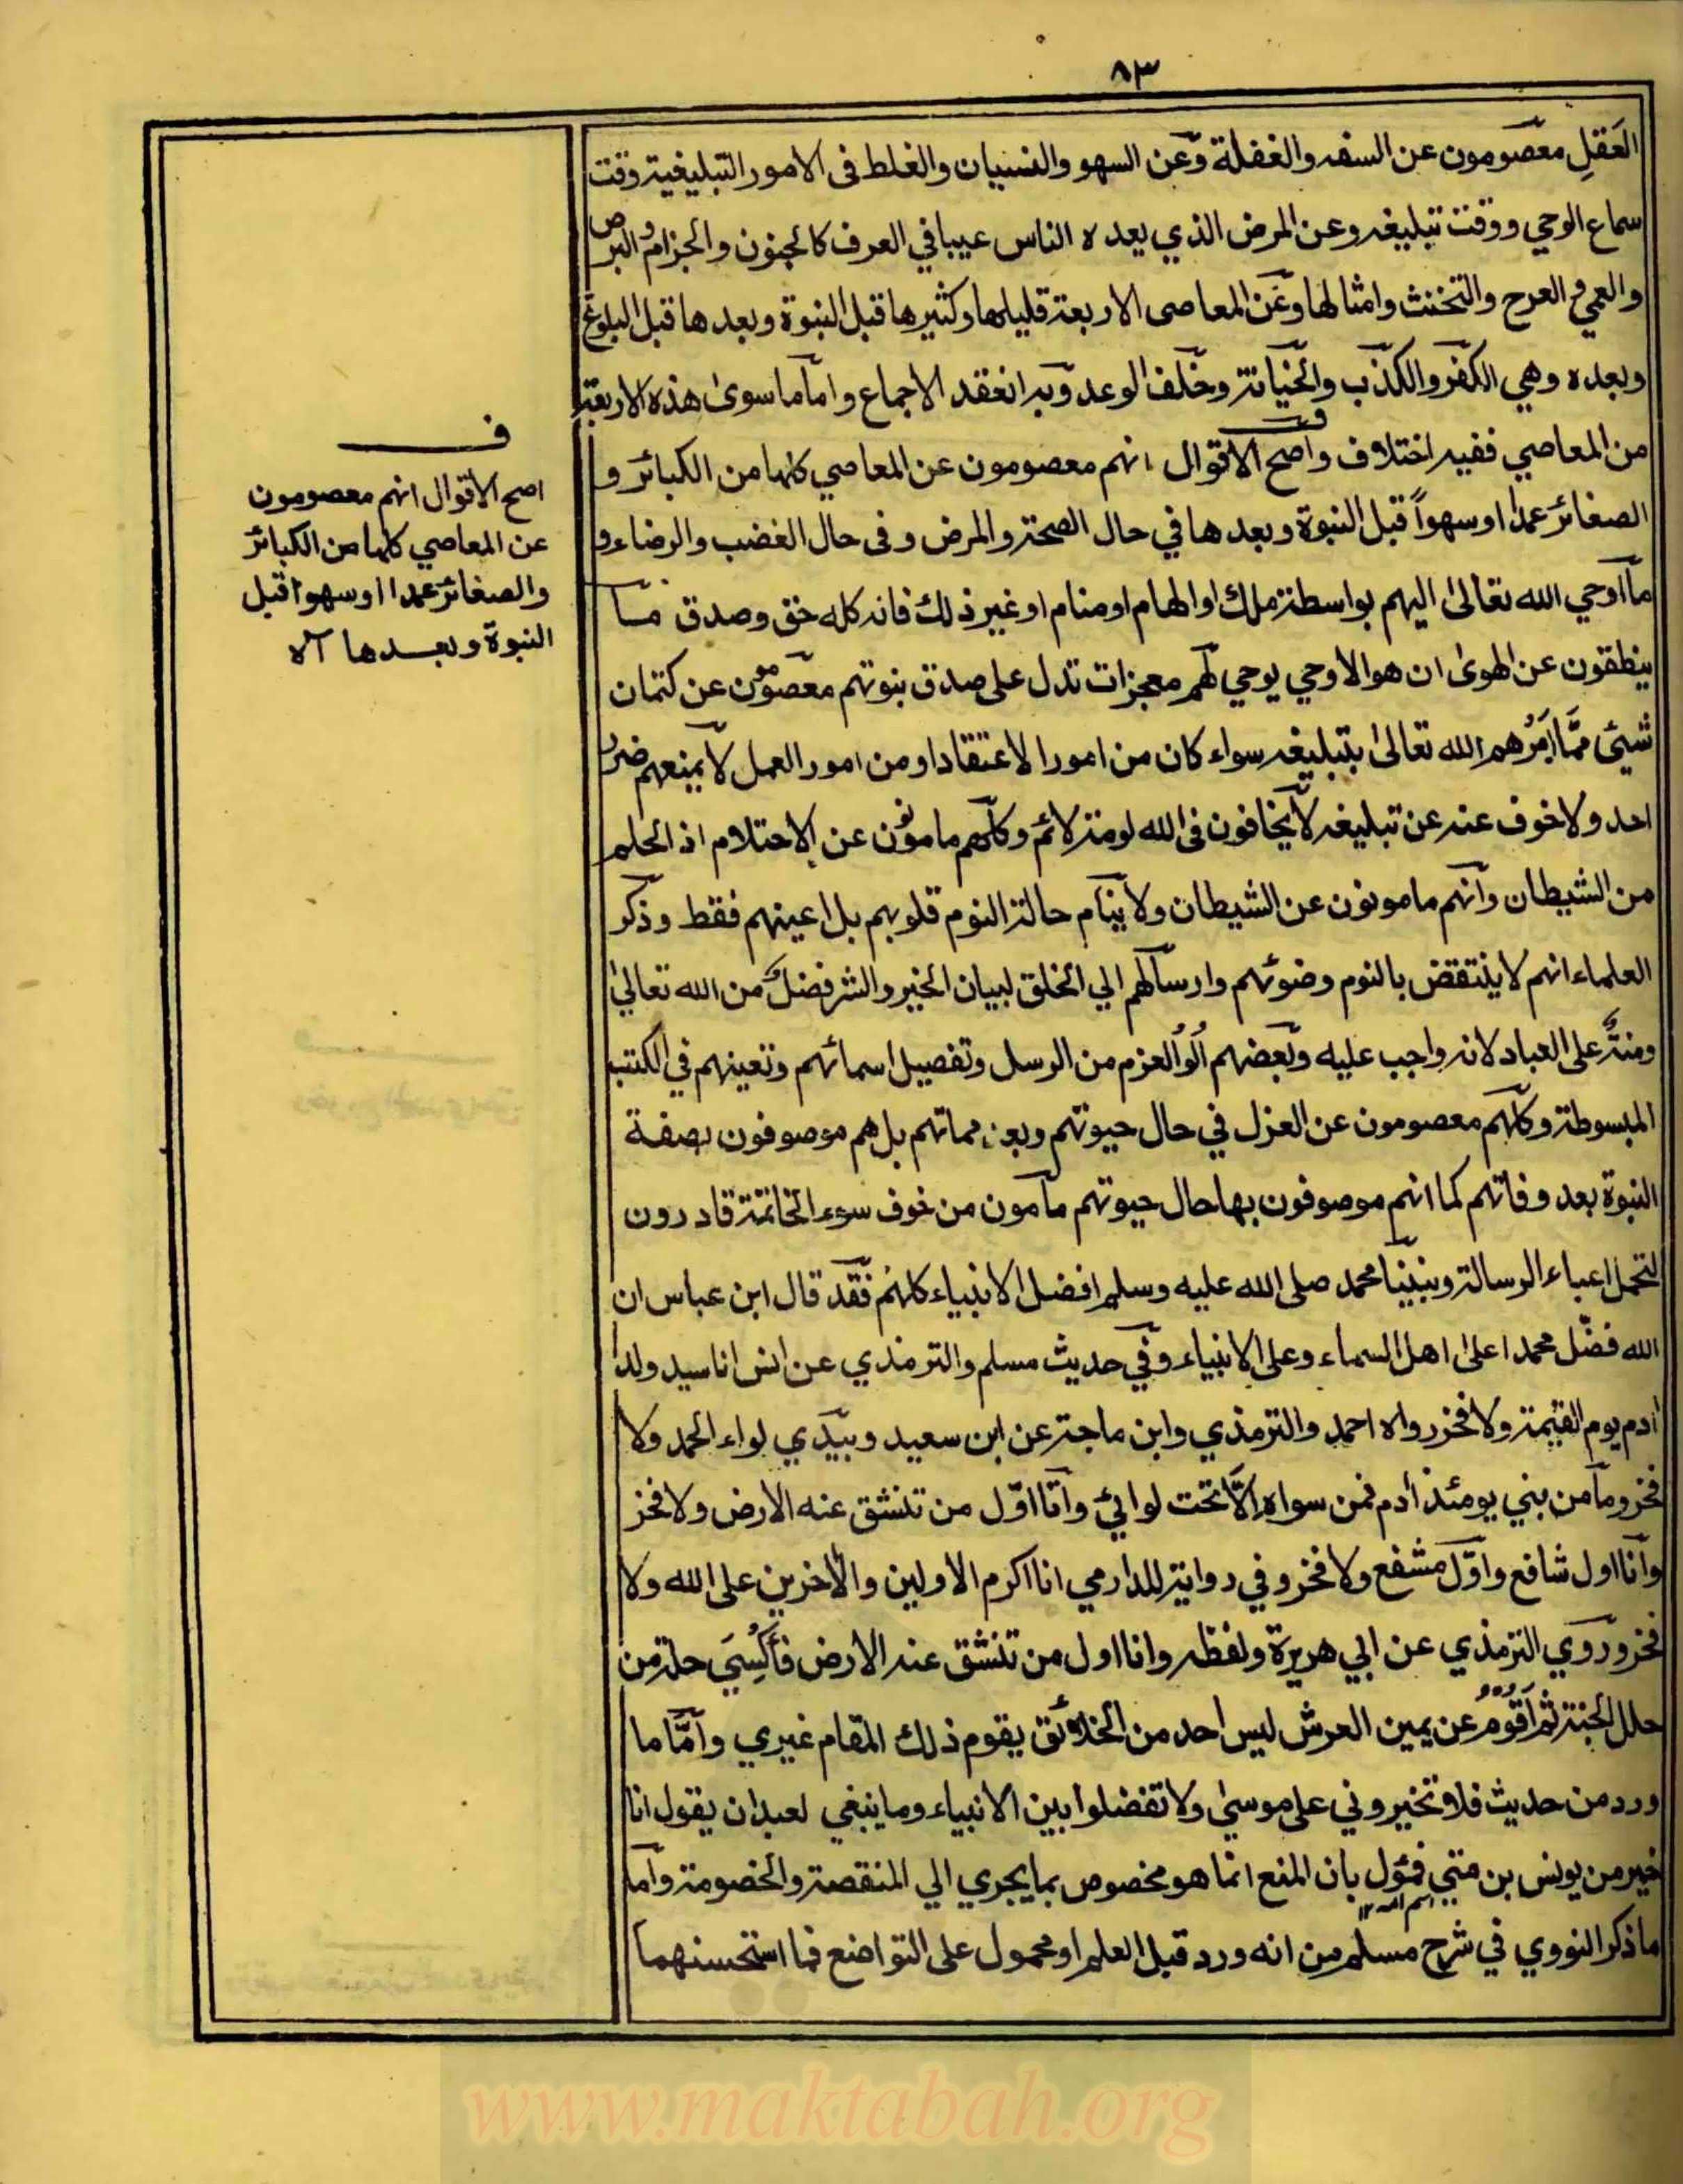 ٨٣
العَقلِ معصومون عن السفه والغفلة وعن السهو والنسيان والغلط فى الامور التبليغية وقت
سماع الوحي ووقت تبليغه وعن المرض الذي يعده الناس عيبا في العرف كالجنون والجزام والبرص
والعمي والعرج والتخنث وامثالها وعن المعاصى الاربعة قليلها وكثيرها قبل النبوة وبعدها قبل البلوغ
وبعده وهي الكفر والكذب والخيانة وخلف الوعد وبه انعقد الاجماع واما ما سوى هذه الاربعة
من المعاصي ففيه اختلاف واصح الاقوال انهم معصومون عن المعاصي كلها من الكبائر و
الصغائر عمدا او سهواً قبل النبوة وبعدها في حال الصحة والمرض وفى حال الغضب والرضاء و
ما اوحي الله تعالىٰ اليهم بواسطة ملك او الهام او منام او غير ذلك فانه كله حق وصدق ما
ينطقون عن الهوىٰ ان هو الا وحي يوحي لهم معجزات تدل على صدق نبوتهم معصومون عن كتمان
شيئ ممّا اَمَرَهم الله تعالىٰ بتبليغه سواء كان من امور الاعتقاد او من امور العمل لا يمنعهم ضرر
احد ولا خوف عنه عن تبليغه لا يخافون فى الله لومة لائم وكلهم مامونون عن الاحتلام اذ الحلم
من الشيطان وانهم مامونون عن الشيطان ولا ينام حالة النوم قلوبهم بل اعينهم فقط وذكر
العلماء انهم لا ينتقض بالنوم وضوئهم وارسالهم الي الخلق لبيان الخير والشر فضل من الله تعالىٰ
ومنةٌ على العباد لانه واجب عليه وبعضهم اُلُو العزم من الرسل وتفصيل اسمائهم وتعينهم في الكتب
المبسوطة وكلهم معصومون عن العزل في حال حيوتهم وبعد مماتهم بل هم موصوفون بصفة
النبوة بعد وفاتهم كما انهم موصوفون بها حال حيوتهم مامون من خوف سوء الخاتمة قادرون
لتحمل اعباء الرسالة ونبينا محمد صلى الله عليه وسلم افضل الانبياء كلهم فقد قال ابن عباس ان
الله فضّل محمدا علىٰ اهل السماء وعلى الانبياء وفي حديث مسلم والترمذي عن انس انا سيد ولد
اٰدم يوم القيٰمة ولا فخر رواه احمد والترمذي وابن ماجة عن ابن سعيد وبيدي لواء الحمد ولا
فخر وما من بني يومئذ اٰدم فمن سواه الّا تحت لوائي وانا اوّل من تنشق عنه الارض ولا فخر
وانا اول شافع واوّل مشفع ولا فخر وفي رواية للدارمي انا اكرم الاولين والأخرين على الله ولا
فخر وروي الترمذي عن ابي هريرة ولفظه وانا اول من تنشق عنه الارض فأُكْسيَ حلة من
حلل الجنة ثم اَقُوْمُ عن يمين العرش ليس احد من الخلائق يقوم ذلك المقام غيري وامّا ما
ورد من حديث فلا تخيروني على موسىٰ ولا تفضلوا بين الانبياء وما ينبغي لعبد ان يقول انا
خير من يونس بن متي فمئول بان المنع انما هو مخصوص بما يجري الي المنقصة والخصومة واما
اسم امه ١٢
ما ذكر النووي في شرح مسلم من انه ورد قبل العلم او محمول على التواضع فما استحسنهما
ف
اصح الاقوال انهم معصومون
عن المعاصي كلها من الكبائر
والصغائر عمدا او سهوا قبل
النبوة وبعدها آلا
www.maktabah.org